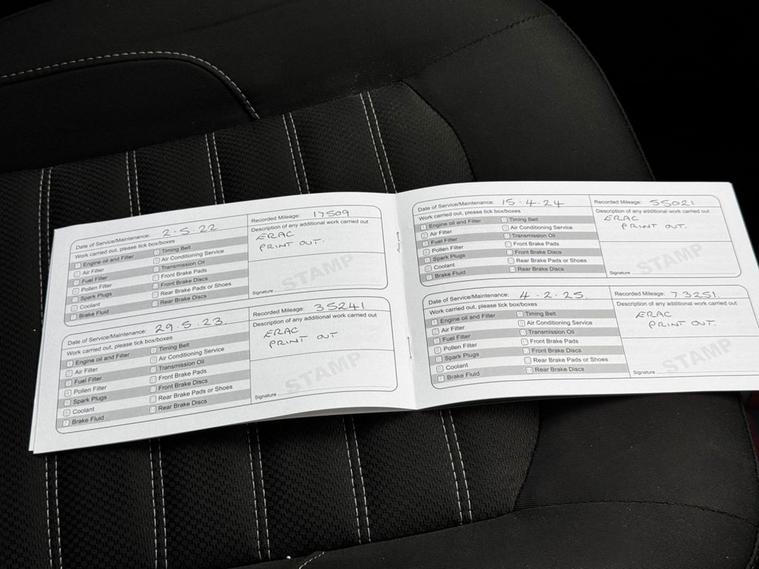 Date of Service/Maintenance: 2.5.22
Recorded Mileage: 17509
Work carried out, please tick box/boxes
Description of any additional work carried out
Engine oil and Filter
Timing Belt
Air Filter
Air Conditioning Service
Fuel Filter
Transmission Oil
Pollen Filter
Front Brake Pads
Spark Plugs
Front Brake Discs
Coolant
Rear Brake Pads or Shoes
Brake Fluid
Rear Brake Discs
ERAC
PRINT OUT.
STAMP
Signature
Date of Service/Maintenance: 29.5.23
Recorded Mileage: 35241
Work carried out, please tick box/boxes
Description of any additional work carried out
Engine oil and Filter
Timing Belt
Air Filter
Air Conditioning Service
Fuel Filter
Transmission Oil
Pollen Filter
Front Brake Pads
Spark Plugs
Front Brake Discs
Coolant
Rear Brake Pads or Shoes
Brake Fluid
Rear Brake Discs
ERAC
PRINT OUT
STAMP
Signature
Date of Service/Maintenance: 15.4.24
Recorded Mileage: 55021
Work carried out, please tick box/boxes
Description of any additional work carried out
Engine oil and Filter
Timing Belt
Air Filter
Air Conditioning Service
Fuel Filter
Transmission Oil
Pollen Filter
Front Brake Pads
Spark Plugs
Front Brake Discs
Coolant
Rear Brake Pads or Shoes
Brake Fluid
Rear Brake Discs
ERAC
PRINT OUT.
STAMP
Signature
Date of Service/Maintenance: 4.2.25
Recorded Mileage: 73251
Work carried out, please tick box/boxes
Description of any additional work carried out
Engine oil and Filter
Timing Belt
Air Filter
Air Conditioning Service
Fuel Filter
Transmission Oil
Pollen Filter
Front Brake Pads
Spark Plugs
Front Brake Discs
Coolant
Rear Brake Pads or Shoes
Brake Fluid
Rear Brake Discs
ERAC
PRINT OUT.
STAMP
Signature